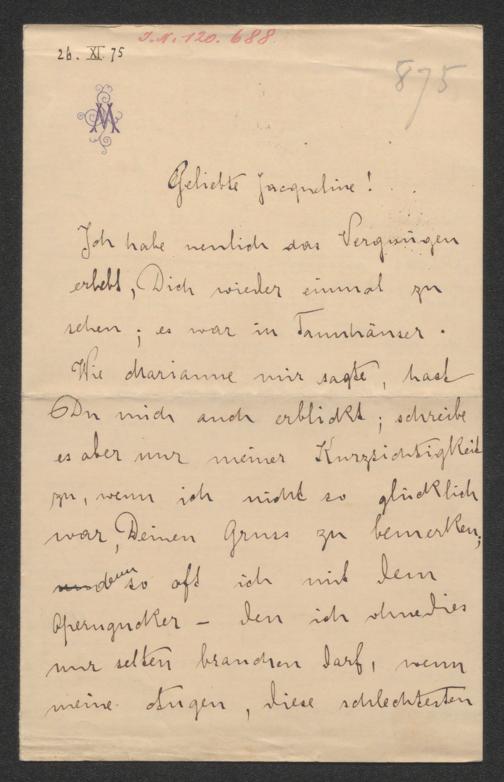 I.N. 120.688
26. XI. 75
875
AM
Geliebte Jacqueline!
Ich habe neulich das Vergnügen
erlebt, Dich wieder einmal zu
sehen; es war in Tannhäuser.
Wie Marianne mir sagte, hast
Du mich auch erblickt; schreibe
es aber nur meiner Kurzsichtigkeit
zu, wenn ich nicht so glücklich
war, Deinen Gruss zu bemerken;
und denn so oft ich mit dem
Operngucker – den ich ohnedies
nur selten brauchen darf, wenn
meine Augen, diese schlechtesten